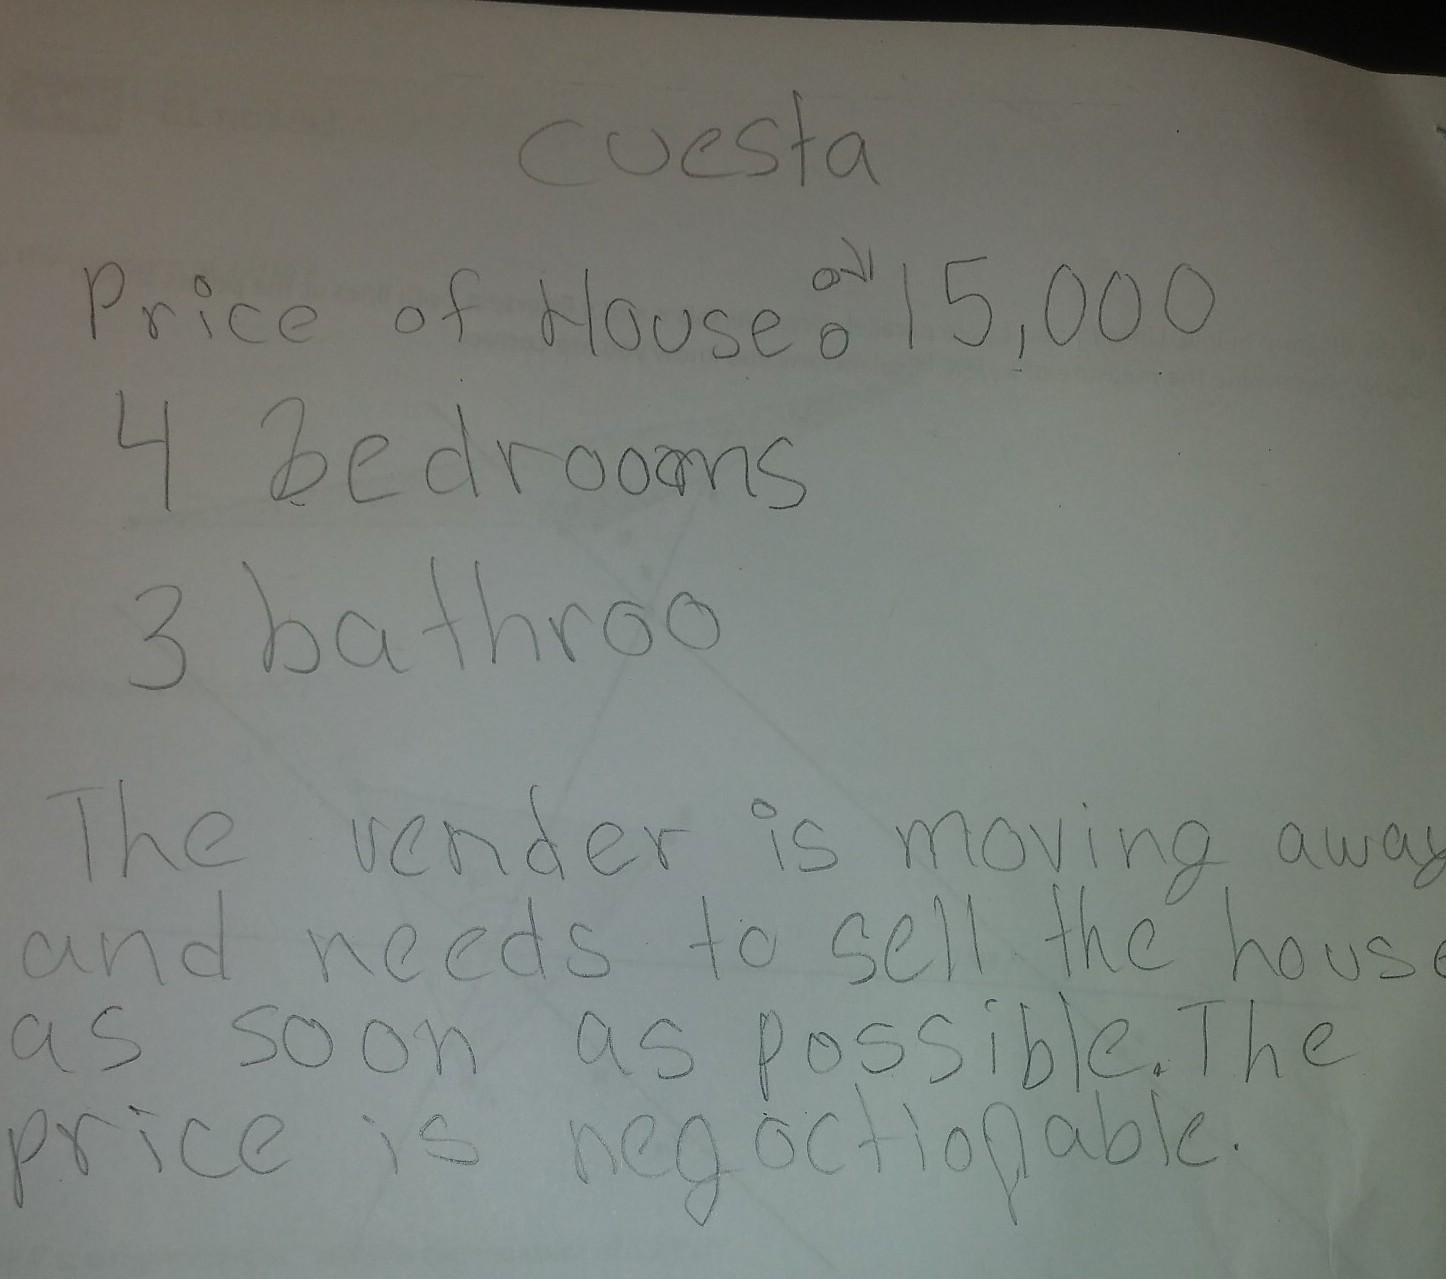 cuesta
Price of House: 15,000
4 Bedrooms
3 bathroo
The vender is moving away
and needs to sell the house
as soon as possible. The
price is negoctionable.